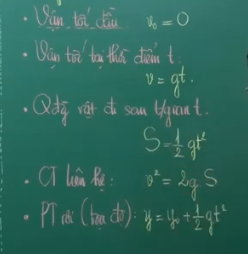 • Vận tốc đầu v₀ = 0
• Vận tốc tại thời điểm t:
v = gt.
• Qđg vật đi sau t/gian t.
S = ½ gt²
• CT liên hệ: v² = 2g.S
• PT rơi (tọa độ): y = y₀ + ½ gt²